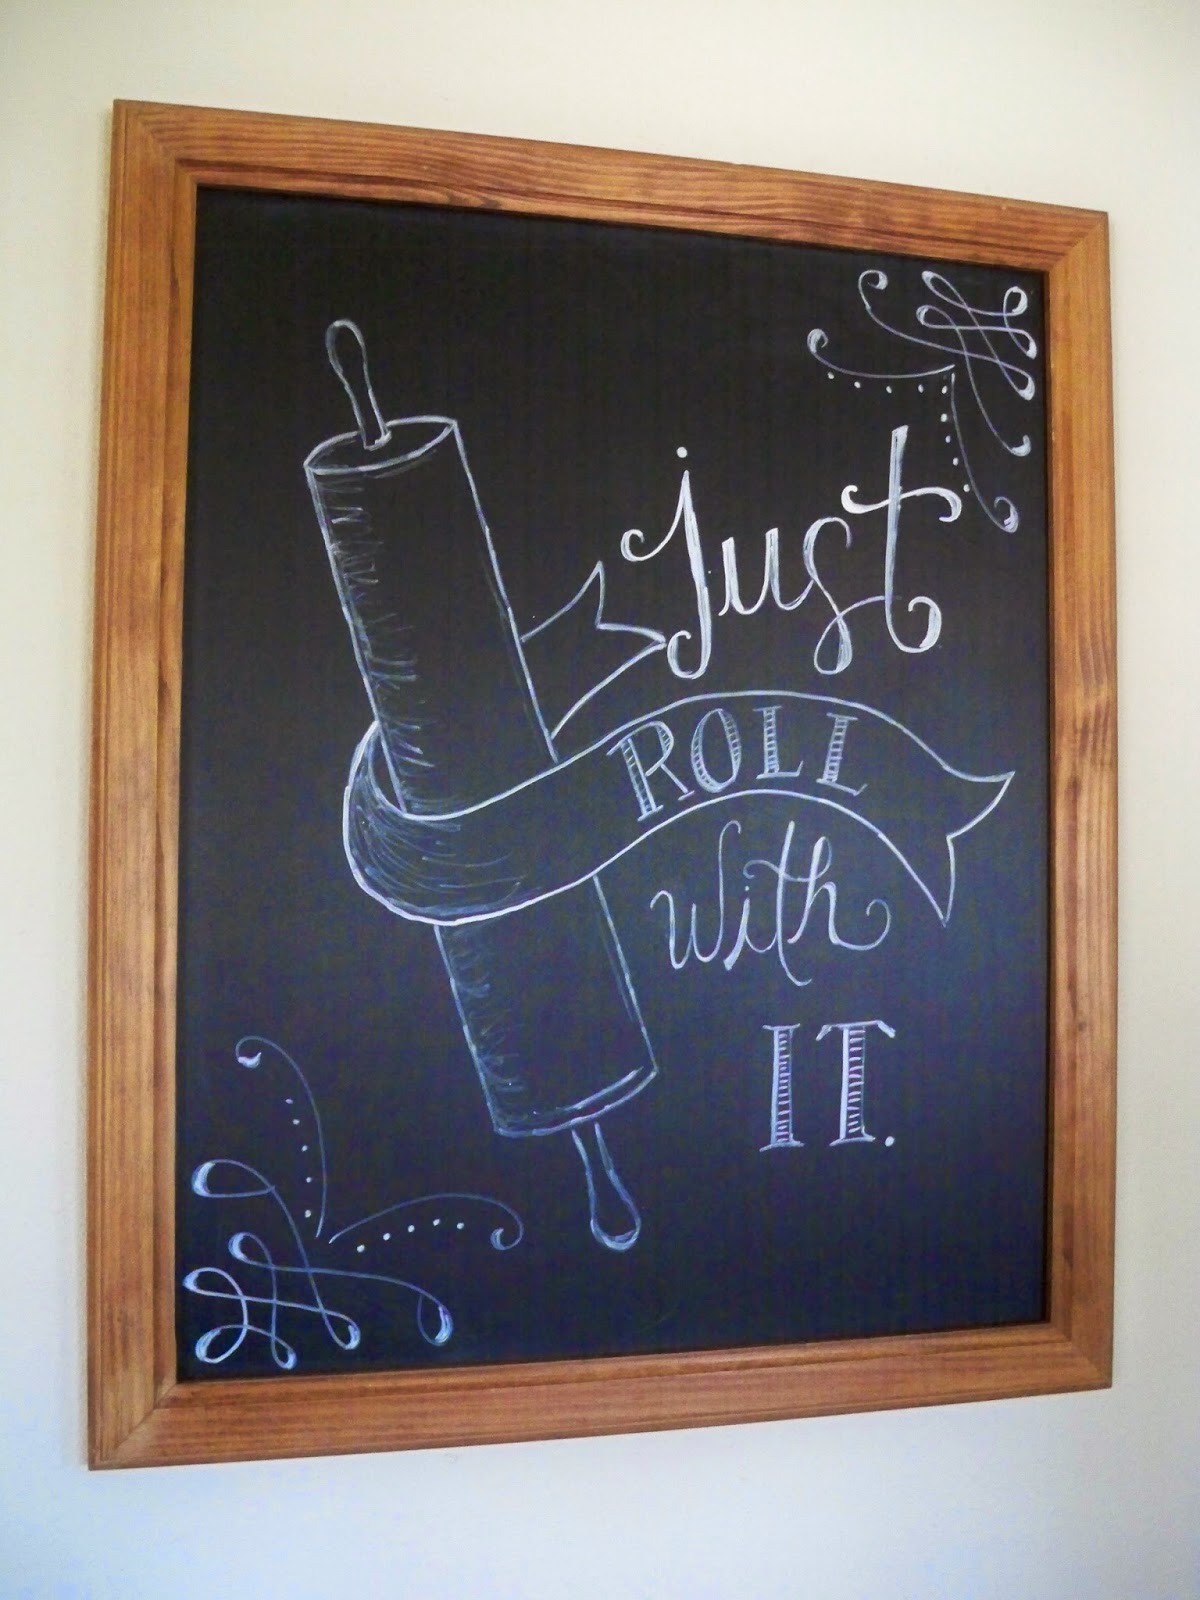 Just
ROLL
with
IT.